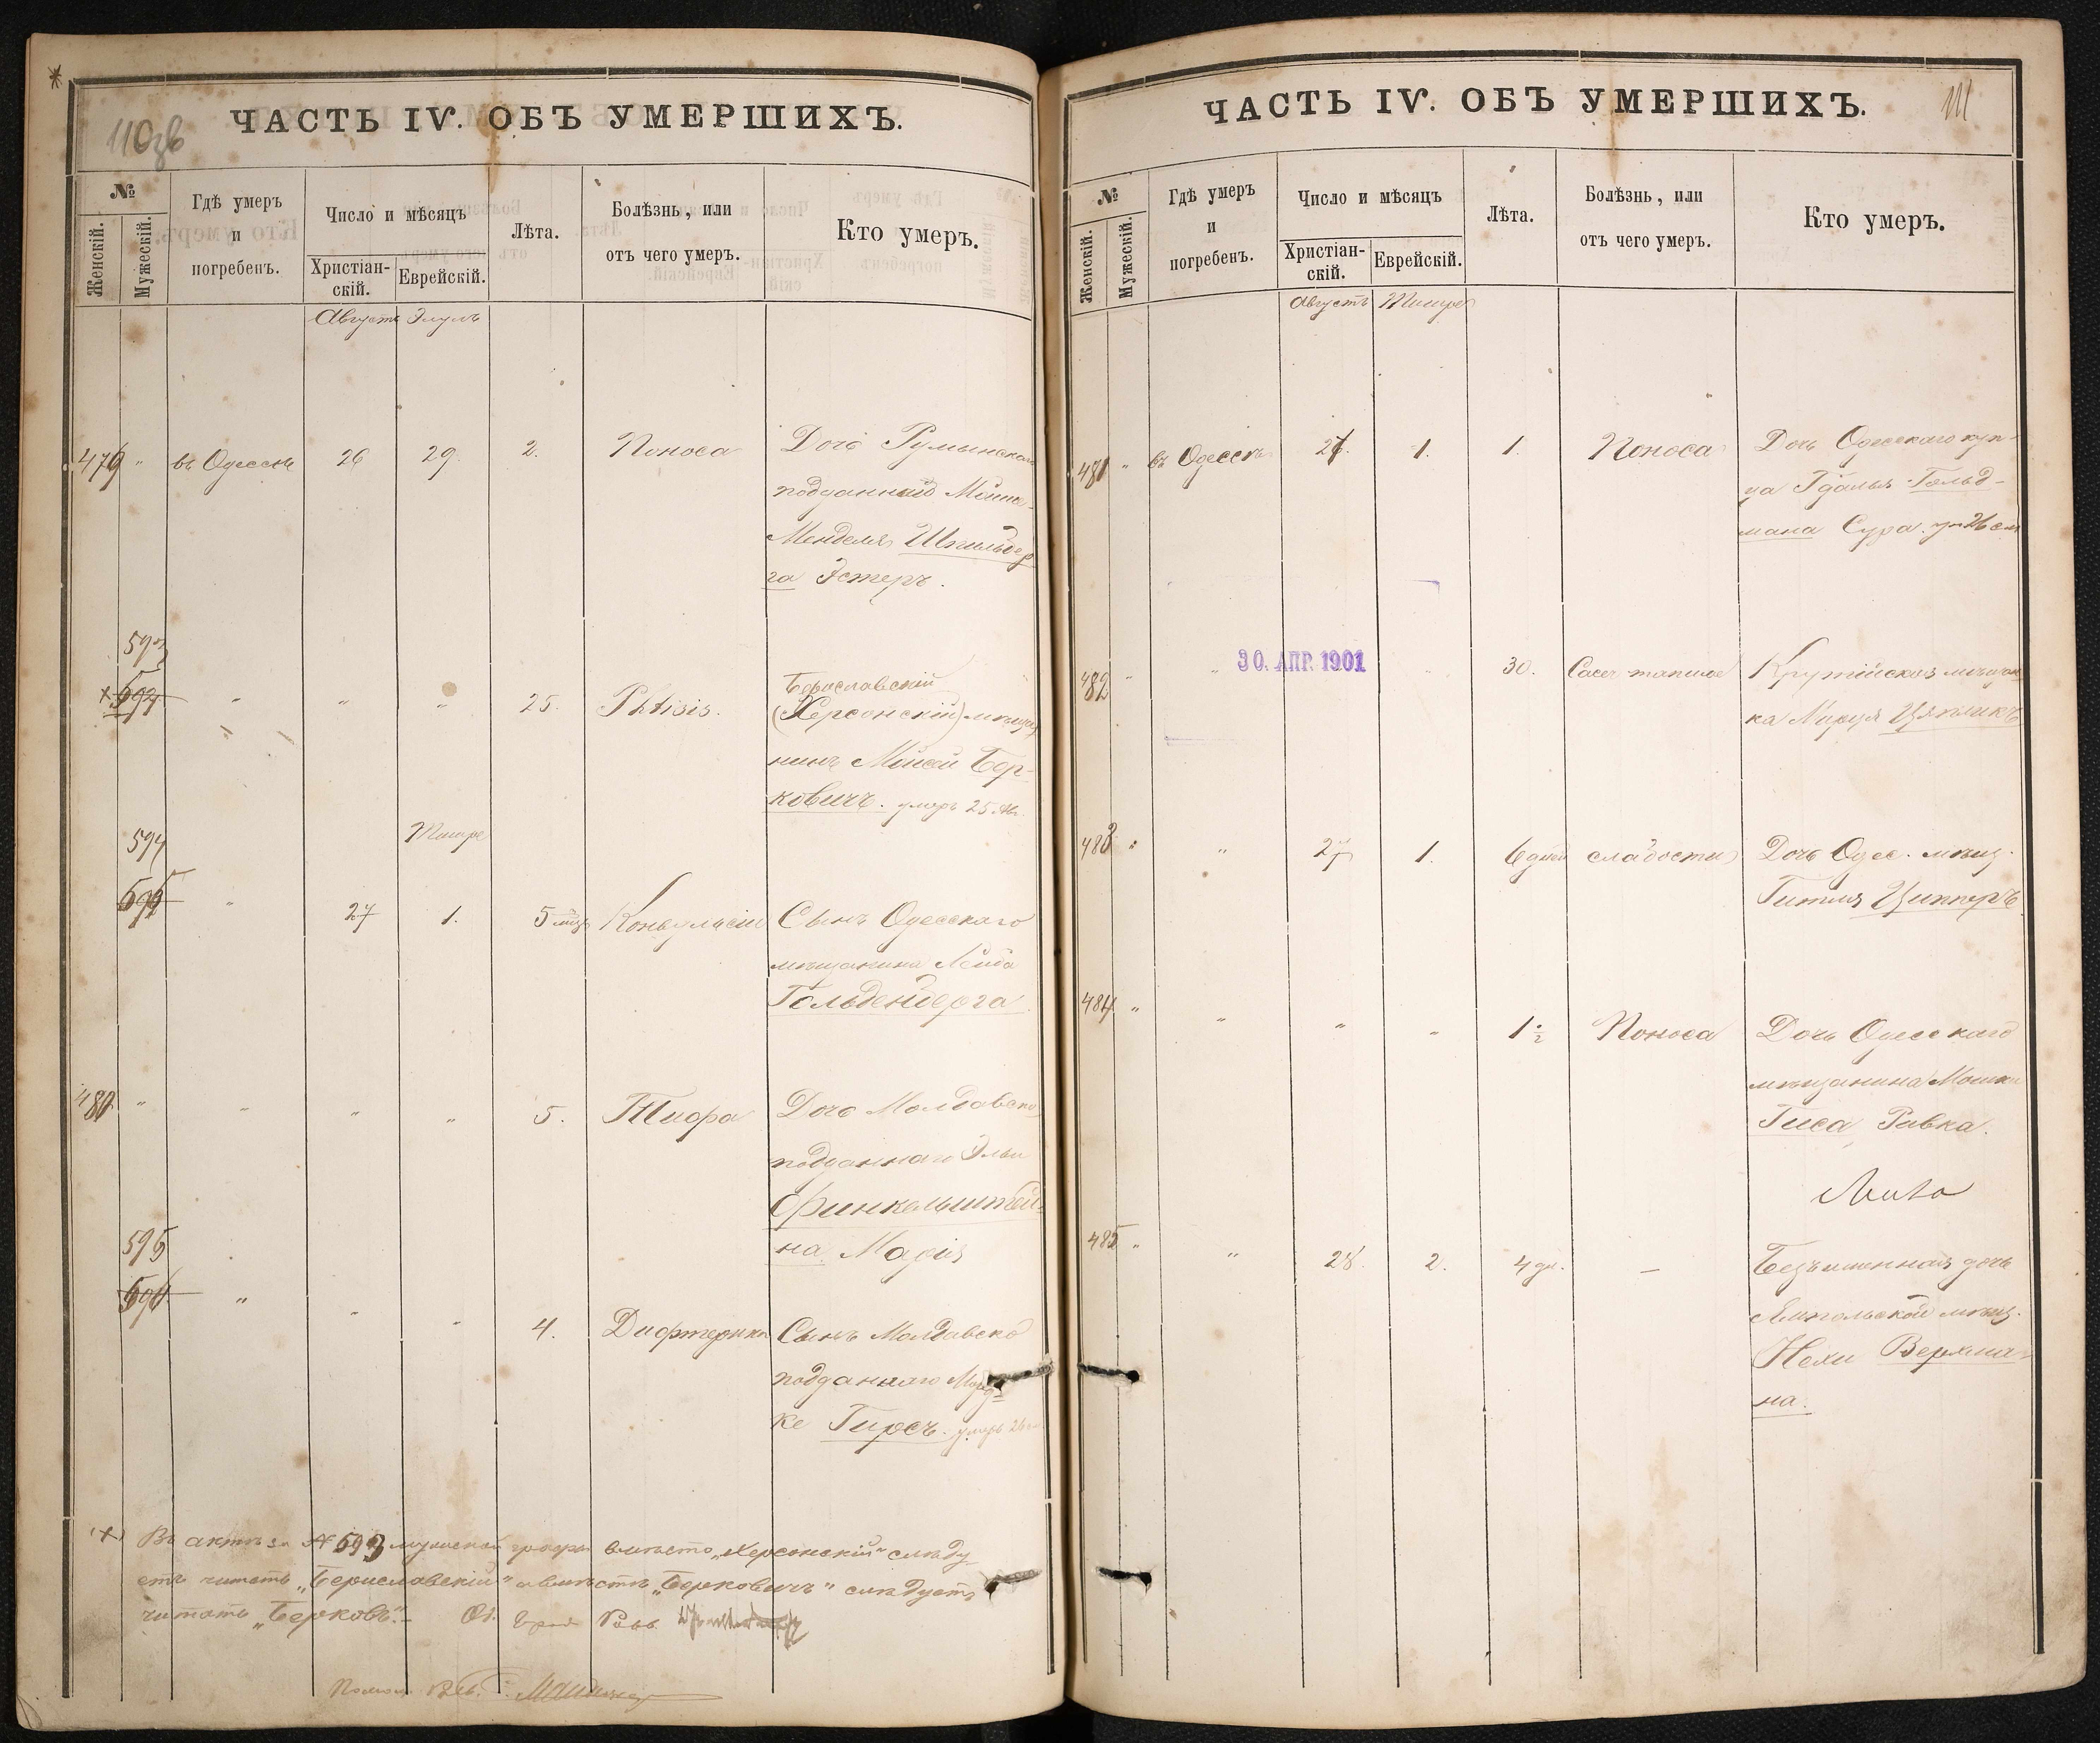 110 об
ЧАСТЬ IV. ОБЪ УМЕРШИХЪ.
№
Женскій.
Мужескій.
Гдѣ умеръ
и
погребенъ.
Число и мѣсяцъ
Христіан-
скій.
Еврейскій.
Лѣта.
Болѣзнь, или
отъ чего умеръ.
Кто умеръ.
Августъ Элулъ
479 " въ Одессѣ 26 29. 2. Поноса Дочь Румынскаго
подданнаго
Менделя Шпильбер
га Эстеръ.
593
Бериславскій
" " " 25. Phtisis. (Херсонскій) мѣща
нинъ Мойсей Бер-
ковичъ. умеръ 25 Ав.
594 Тишре
" 27 1. 5 мѣс Конвульсіи Сынъ Одесскаго
мѣщанина Лейба
Гольденберга
480 " " " " 5. Тифа Дочь Молдавско
подданнаго Эльи
Финкельштей
на Марія
595
" " " 4. Дифтерита Сынъ Молдавско
подданнаго Морд
ке Гирсъ. умеръ 26
(+) Въ актѣ за № 593 мужской графы вмѣсто "Херсонскій" слѣду-
етъ читать "Бериславскій" а вмѣсто "Берковичъ" слѣдуетъ
читать "Берковъ".- Од. Равв.
Помощ.
111
ЧАСТЬ IV. ОБЪ УМЕРШИХЪ.
№
Женскій.
Мужескій.
Гдѣ умеръ
и
погребенъ.
Число и мѣсяцъ
Христіан-
скій.
Еврейскій.
Лѣта.
Болѣзнь, или
отъ чего умеръ.
Кто умеръ.
Августъ Тишре
481 " въ Одессѣ 27. 1. 1. Поноса Дочь Одесскаго куп-
ца Гдалья Гольд-
мана Сура. ум 26
30. АПР. 1901
482 " " " 30. мѣщан
ка
483 " " 27 1. 6 дней слабости Дочь Одес. мѣщ.
Гитля Ципперъ
484 " " " " 1 1/2 Поноса Дочь Одесскаго
мѣщанина Мошки
Гиса Ривка.
485 " " 28. 2. 4 дн. — Безъименная дочь
Ямпольской мѣщ.
Нехи Верхма
на.